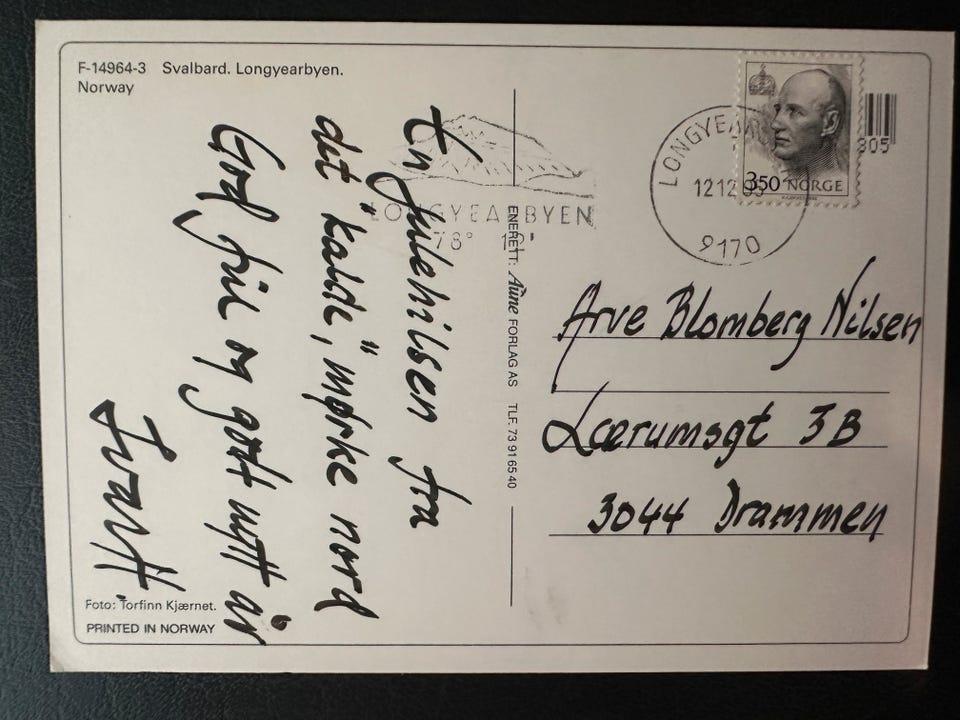 F-14964-3 Svalbard. Longyearbyen.
Norway
En julehilsen fra
det "kalde", mørke nord
God jul og godt nytt år
LONGYEARBYEN
78°
ENERETT: Aune FORLAG AS TLF. 73 91 65 40
12 12
9170
350 NORGE
Arve Blomberg Nilsen
Lærumsgt 3B
3044 Drammen
Foto: Torfinn Kjærnet.
PRINTED IN NORWAY